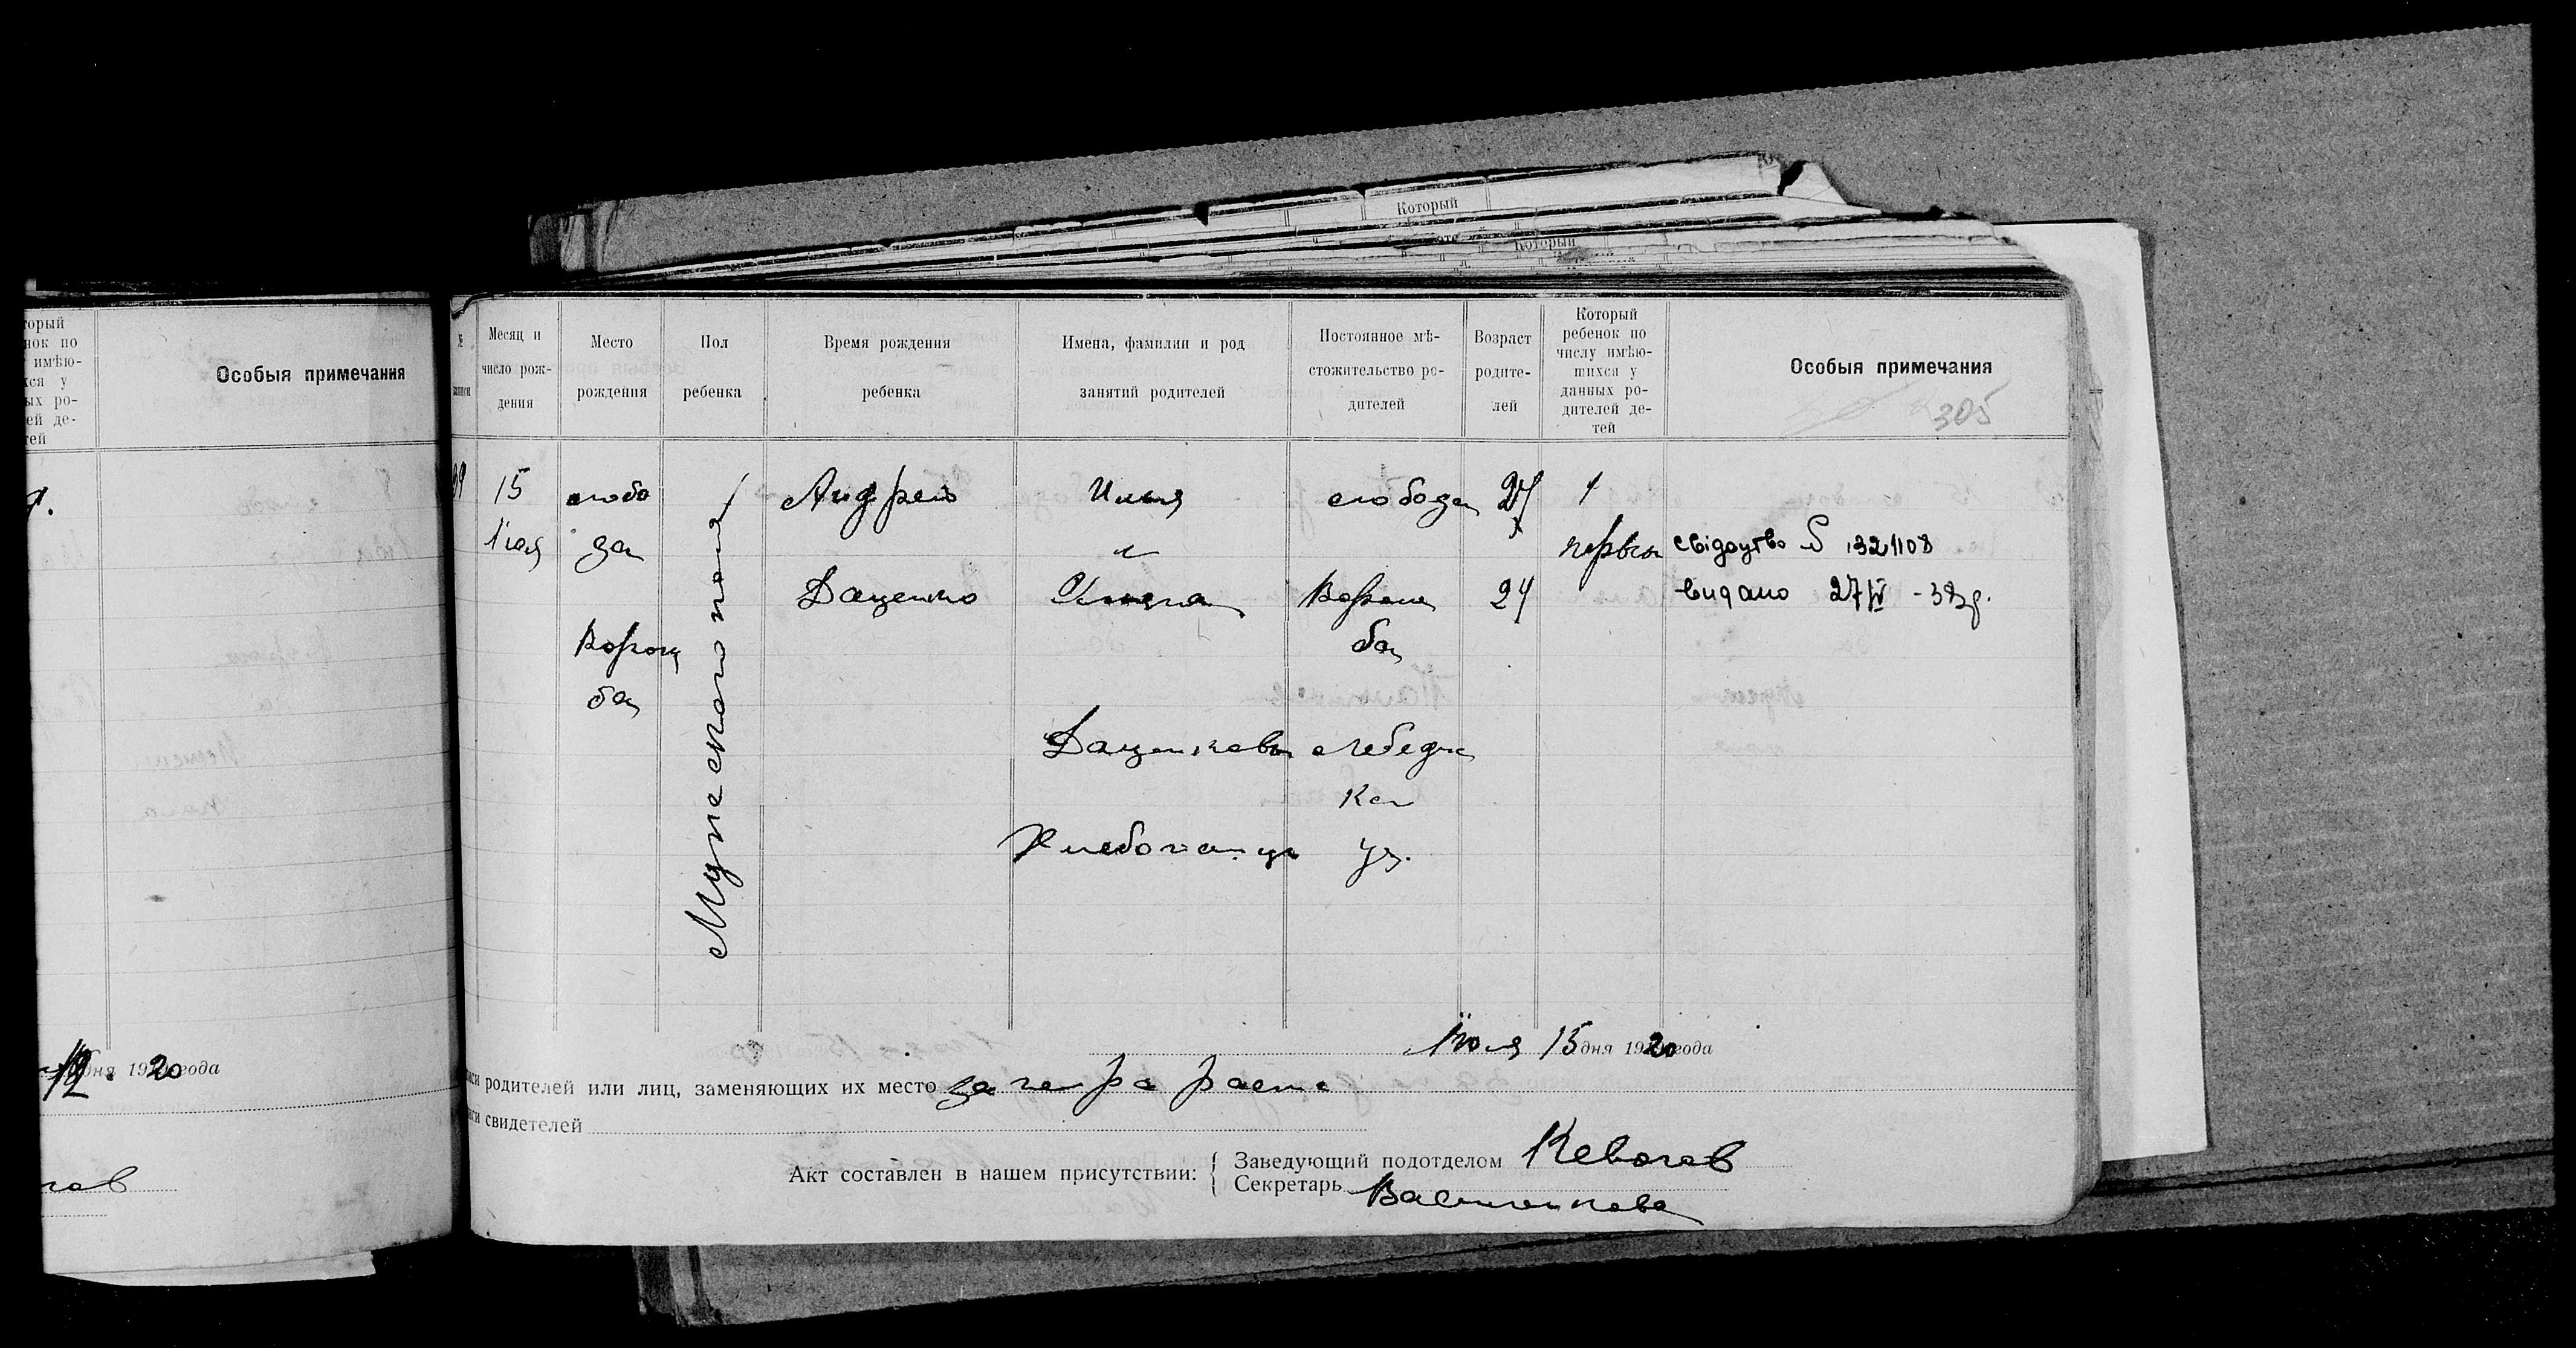 Который
Который
Особыя примечания
дня 19 20 года
№
Месяц и число рож-
дения
Место
рождения
Пол
ребенка
Время рождения
ребенка
Имена, фамилии и род
занятий родителей
Постоянное мѣ-
стожительство ро-
дителей
Возраст
родите-
лей
Который
ребенок по
числу имѣю-
щихся у
данных ро-
дителей де-
тей
Особыя примечания
305
15
Июля
слобо
да
Ворож
ба
Мужеского пола
Андрей
Даценко
Илья
и
Даценковы
Хлебопашцы
слобода
Ворож
ба
Лебедин
ск
уз.
27
24
1
первы
свідоцтво S 1321108
видано 27/IV - 38р.
Июля 15 дня 1920 года
родителей или лиц, заменяющих их место
свидетелей
Акт составлен в нашем присутствии:
Заведующий подотделом
Секретарь